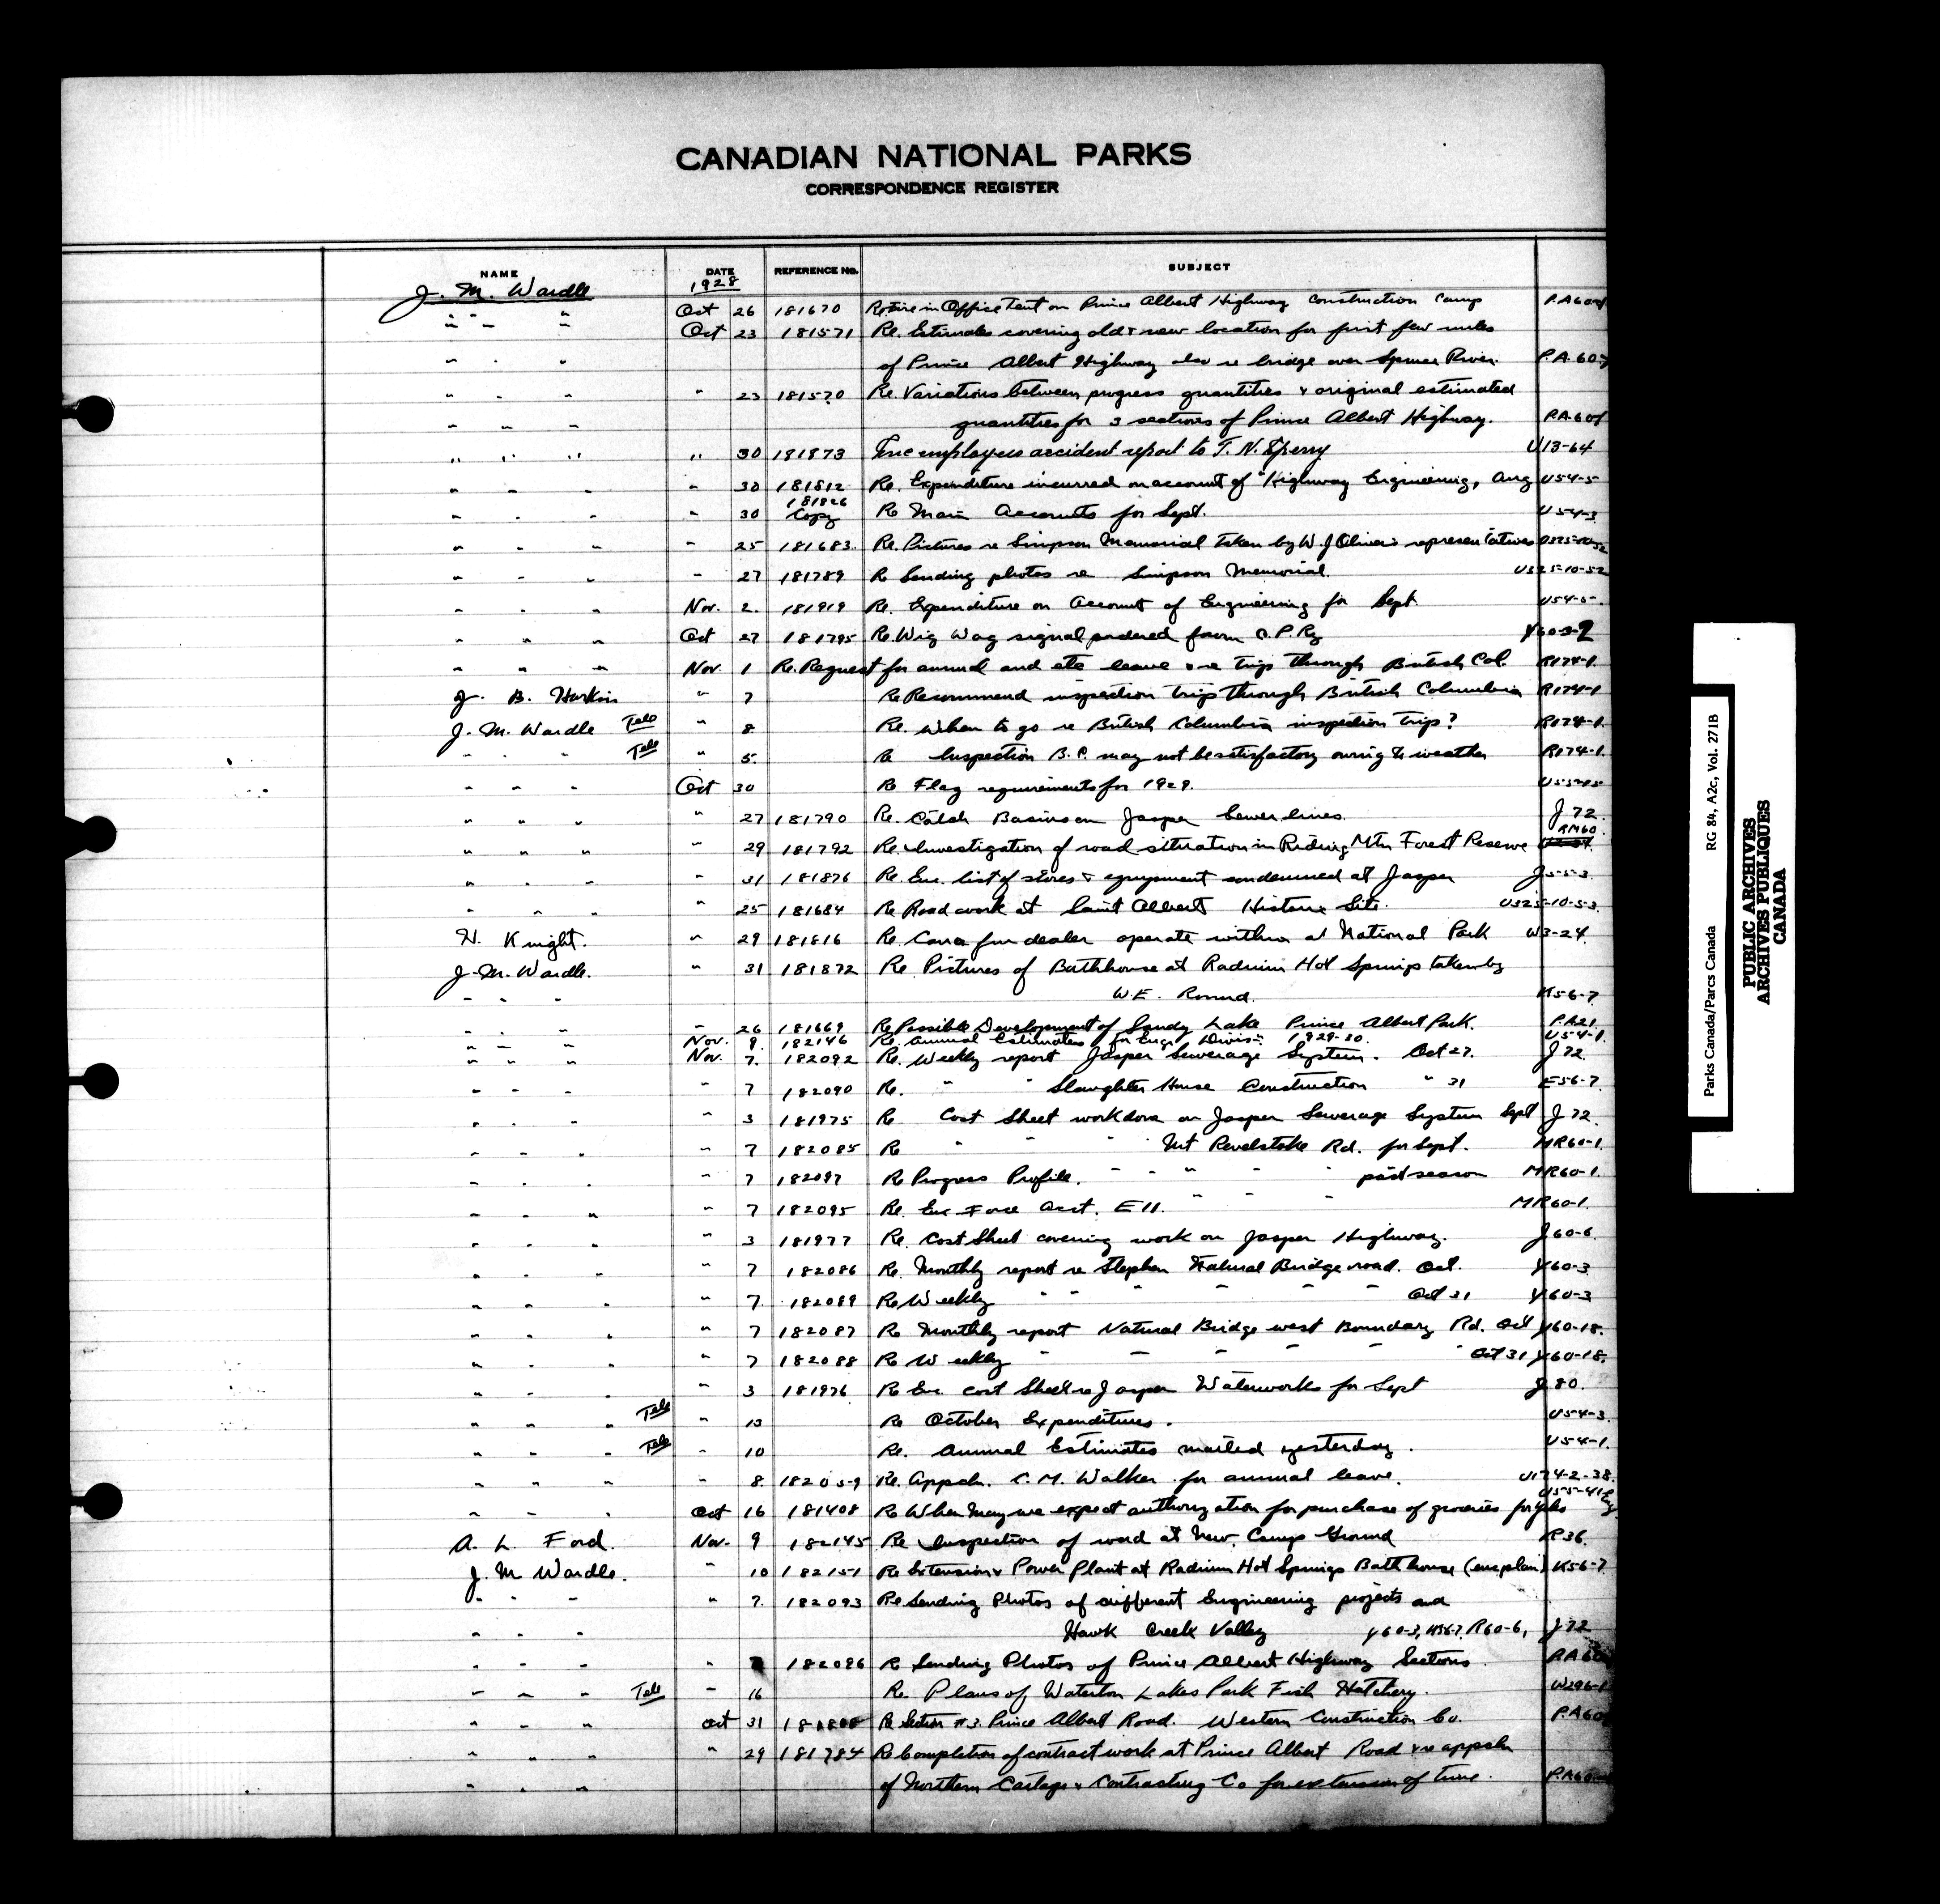 CANADIAN NATIONAL PARKS
CORRESPONDENCE REGISTER
NAME DATE REFERENCE No. SUBJECT
J. M. Wardle 1928
Oct 26 181670 Re fire in Office Tent on Prince Albert Highway Construction Camp P.A60
" " " Oct 23 181571 Re. Estimates covering old & new location for first few miles
" . " of Prince Albert Highway also re bridge over Spruce River. P.A.60
" . " " 23 181570 Re. Variations between progress quantities & original estimated
" " " quantities for 3 sections of Prince Albert Highway. P.A.60
" " " " 30 181873 Enc employees accident report to T. N. Sperry U13-64
" " " " 30 181812 Re. Expenditure incurred on account of "Highway Engineering, Aug U54-5
181826
" . " " 30 Copy Re Main Accounts for Sept. U54-3
" " " " 25 181683 Re. Pictures re Simpson Memorial taken by W. J Oliver's representatives
" " " " 27 181789 Re Sending photos re Simpson Memorial. U325-10-52
" " " Nov. 2. 181919 Re. Expenditure on Account of Engineering for Sept. U54-5.
" " " Oct 27 181795 Re. Wig Wag signal ordered from C. P. Ry Y60-3-2
" " " Nov. 1 Re. Request for annual and etc leave & re trip through British Col. R174-1.
J. B. Harkin " 7 Re Recommend inspection trip through British Columbia R174-1
J. M. Wardle Tele " 8 Re. When to go re British Columbia inspection trip? R174-1.
" . " Tele " 5. Re Inspection B.C. may not be satisfactory owing to weather R174-1.
" " " Oct 30 Re Flag requirements for 1929. U55-15
" " " " 27 181790 Re. Catch Basins on Jasper Sewer lines. J 72.
RM60.
" " " " 29 181792 Re. Investigation of road situation in Riding Mtn Forest Reserve
" . " " 31 181876 Re. Enc. list of stores & equipment condemned at Jasper J55-3
" " " " 25 181684 Re Road work at Saint Albert Historic Site. U325-10-53.
H. Knight. " 29 181816 Re. Can a fur dealer operate within a National Park W3-24.
J. M. Wardle. " 31 181872 Re Pictures of Bathhouse at Radium Hot Springs taken by
" " " W. E. Round. K56-7.
" . " " 26 181669 Re Possible Development of Sandy Lake Prince Albert Park. P.A21.
" " " Nov. 9. 182146 Re. Annual Estimates for Engr Divis= 1929-30. U54-1.
" " " Nov. 7. 182092 Re. Weekly report Jasper Sewerage System. Oct 27. J 72
" " " " 7 182090 Re. " " Slaughter House Construction " 31 E56-7.
" . " " 3 181975 Re Cost Sheet work done on Jasper Sewerage System Sept J 72.
" " " " 7 182085 Re " " " Mt Revelstoke Rd. for Sept. MR60-1.
" . " " 7 182097 Re Progress Profile. " " " " " past season MR60-1.
" . " " 7 182095 Re. Enc Force Acct. E 11. " " " MR60-1.
" . " " 3 181977 Re. Cost Sheet covering work on Jasper Highway. J60-6.
" . " " 7 182086 Re. Monthly report re Stephen Natural Bridge road. Oct. Y60-3
" . " " 7. 182089 Re Weekly " " " " " " Oct 31 Y60-3
" . " " 7 182087 Re Monthly report Natural Bridge west Boundary Rd. Oct Y60-18.
" . " " 7 182088 Re Weekly " " " " " " Oct 31 Y60-18.
" . " " 3 181976 Re Enc. cost Sheet re Jasper Waterworks for Sept J80.
" " " Tele " 13 Re October Expenditures. U54-3.
" " " Tele " 10 Re. Annual Estimates mailed yesterday. U54-1.
" " " " 8. 182059 Re. Appcln. C. M. Walker for annual leave. U174-2-38.
" " . Oct 16 181408 Re When may we expect authorization for purchase of groceries for U55-41
A. L. Ford. Nov. 9 182145 Re Inspection of word at New. Camp Ground R36.
J. M Wardle. " 10 182151 Re Extension & Power Plant at Radium Hot Springs Bathhouse (enc plan) K56-7
" " " " 7. 182093 Re Sending Photos of different Engineering projects and
" " " Hawk Creek Valley Y60-3, R60-6, J72
" " " " 182096 Re Sending Photos of Prince Albert Highway Sections. P.A
" " " Tele " 16 Re. Plans of Waterton Lakes Park Fish Hatchery. W296-1
" " " Oct 31 Re Section #3. Prince Albert Road. Western Construction Co. P.A60
" " " " 29 181784 Re Completion of contract work at Prince Albert Road & re appcln
" " " of Northern Cartage & Contracting Co for extension of time. P.A60
Parks Canada/Parcs Canada RG 84, A2c, Vol. 271B
PUBLIC ARCHIVES
ARCHIVES PUBLIQUES
CANADA